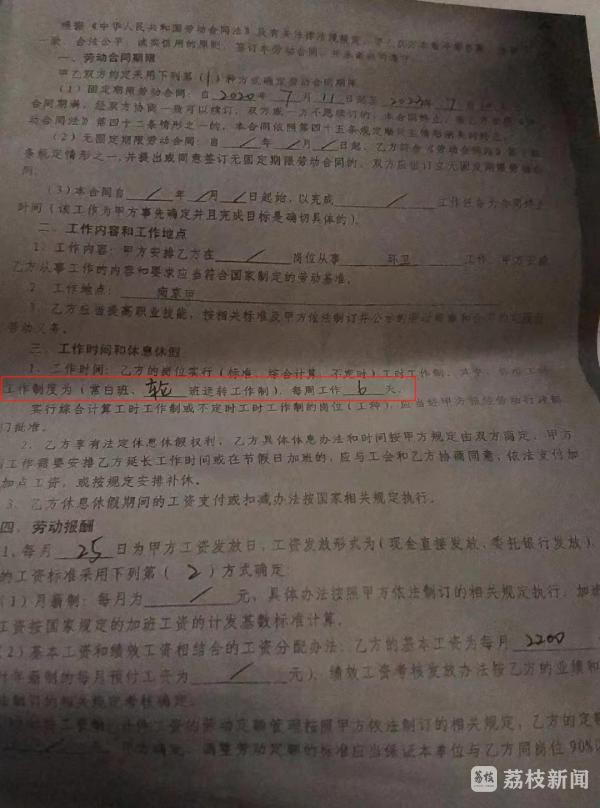 根据《中华人民共和国劳动合同法》及有关法律法规规定，甲乙双方本着平等自愿、
一致、合法公平、诚实信用的原则，签订本劳动合同，
一、劳动合同期限
甲乙双方约定采用下列第（1）种方式确定劳动合同期限
（1）固定期限劳动合同：自2020年7月11日起至2023年7月
合同期满，经双方协商一致可以续订，双方或一方不愿续订的，本合同终止。
动合同法》第四十二条情形之一的，本合同依照第四十五条规定
（2）无固定期限劳动合同：自 / 年 / 月 / 日起。乙方符合《劳动合同法》第
条规定情形之一，并提出或同意签订无固定期限劳动合同的，双方应当订立无固定期限劳动合
同。
（3）本合同自 / 年 / 月 / 日起始，以完成 / 工作任务为合同终止
时间（该工作为甲方事先确定并且完成目标是确切具体的）。
二、工作内容和工作地点
1、工作内容：甲方安排乙方在 / 岗位从事 环卫 工作。甲方安排
乙方从事工作的内容和要求应当符合国家制定的劳动基准。
2、工作地点： 南京市
3、乙方应当提高职业技能，按相关标准及甲方依法制订并公示的
劳动义务。
三、工作时间和休息休假
1、工作时间：乙方的岗位实行（标准、综合计算、不定时）工时工作制。其中，标准工时
工作制度为（常白班、轮 班运转工作制），每周工作 6 天。
实行综合计算工时工作制或不定时工时工作制的岗位（工种），应当经甲方报经劳动行政部
门批准。
2、乙方享有法定休息休假权利，乙方具体休息办法和时间按甲方规定由双方商定。甲方
因工作需要安排乙方延长工作时间或在节假日加班的，应与工会和乙方协商同意，依法支付加
加点工资，或按规定安排补休。
3、乙方休息休假期间的工资支付或扣减办法按国家相关规定执行。
四、劳动报酬
1、每月 25 日为甲方工资发放日，工资发放形式为（现金直接发放、委托银行发放），
的工资标准采用下列第（ 2 ）方式确定：
（1）月薪制：每月为 / 元，具体办法按照甲方依法制订的相关规定执行，加班
工资按国家规定的加班工资的计发基数标准计算。
（2）基本工资和绩效工资相结合的工资分配办法：乙方的基本工资为每月 2200
对年薪制的每月预付工资为 / 元），绩效工资考核发放办法按乙方的业绩和
法制订的相关规定考核确定。
计件工资的劳动定额管理按照甲方依法制订的相关规定，乙方的定额
甲方确定，调整劳动定额的标准应当保证本单位与乙方同岗位90%以
荔枝 荔枝新闻